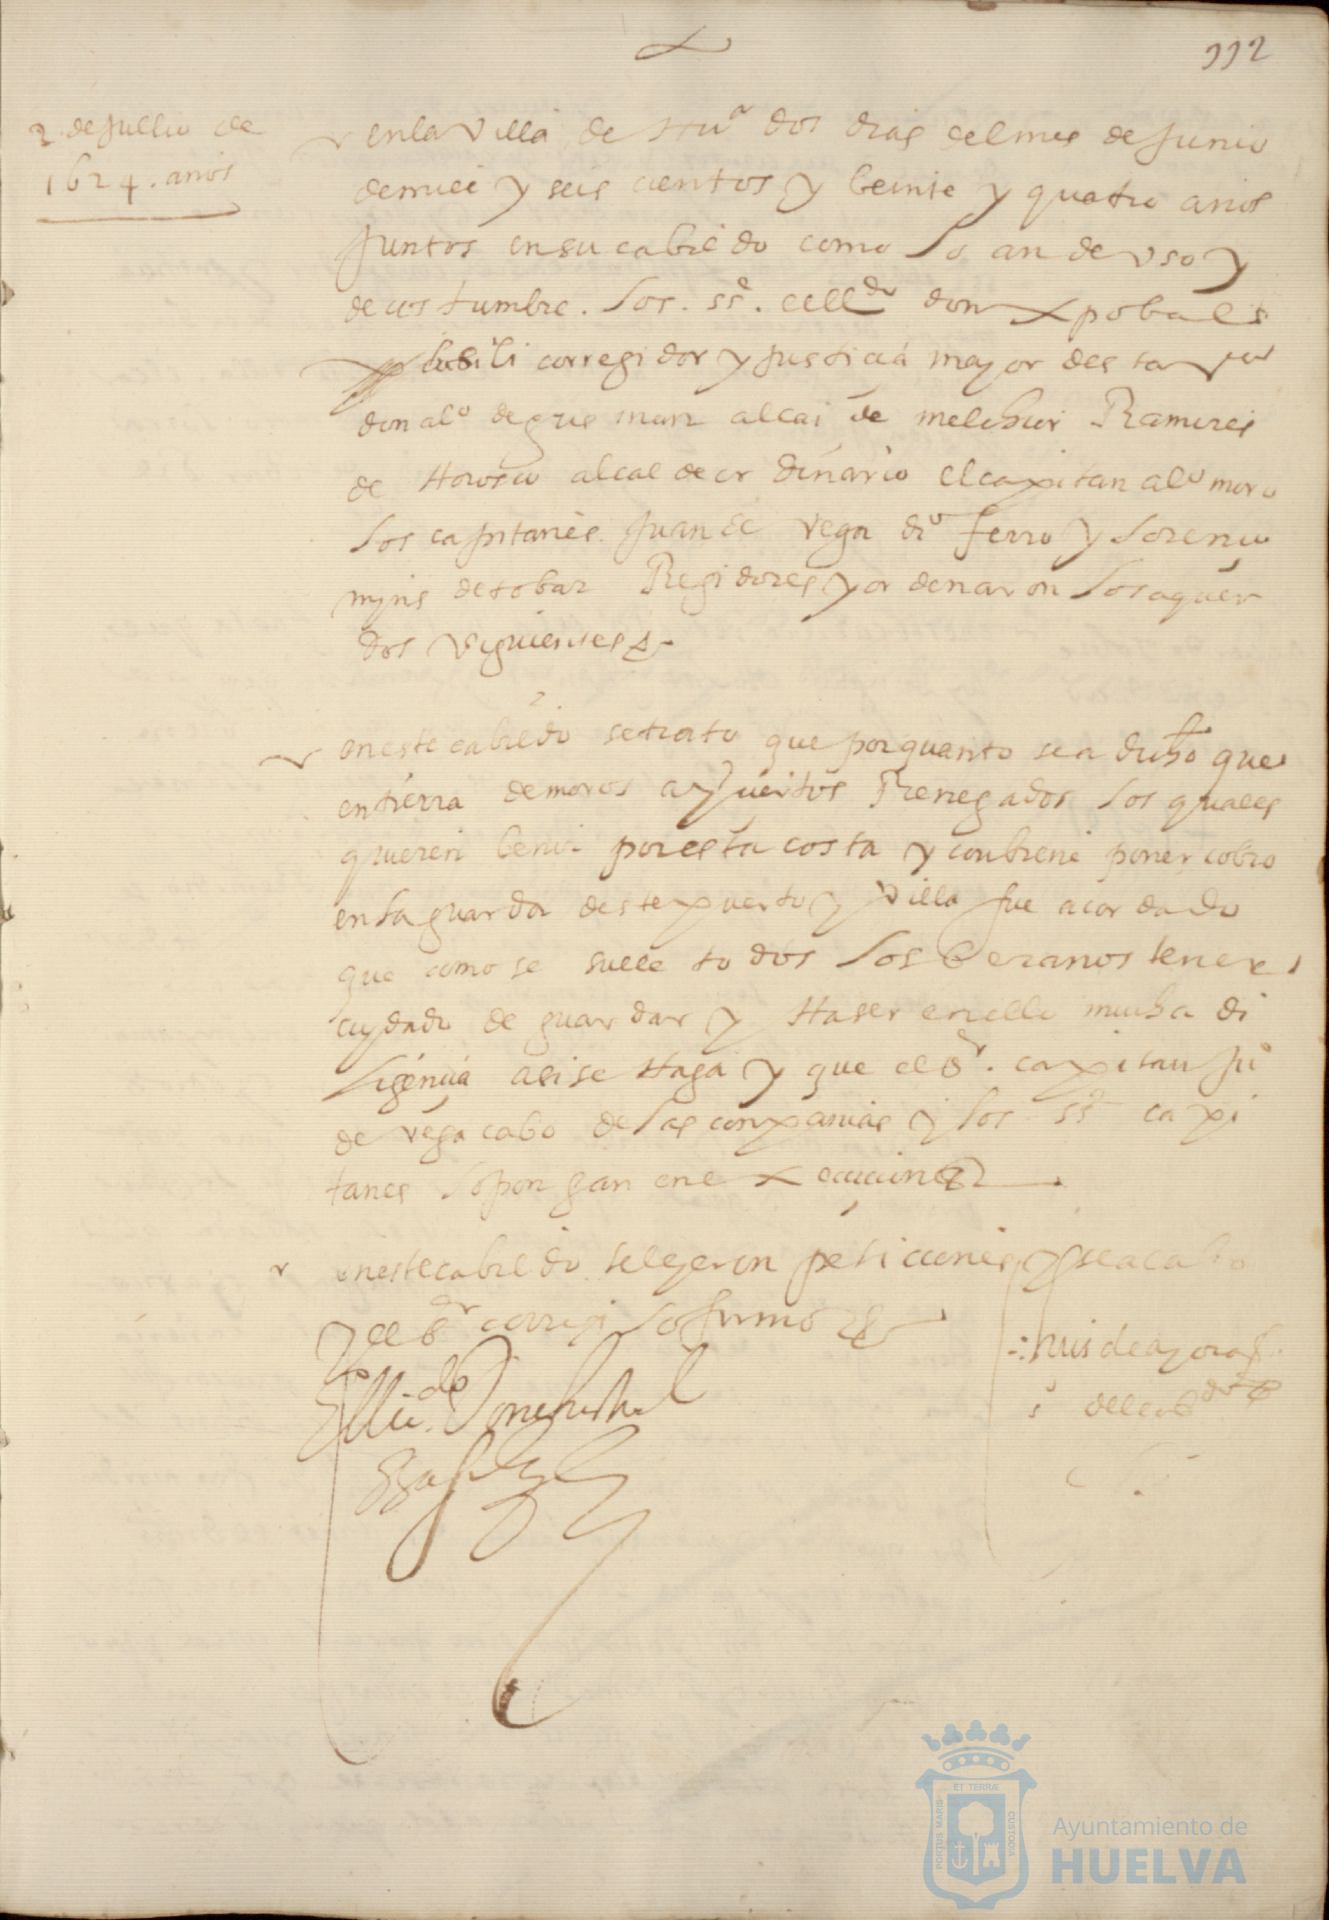 112
2 de jullio de
1624. años
en la villa de Huª dos dias del mes de junio
de mill y seis cientos y beinte y quatro años
juntos en su cabildo como lo an de uso y
de costumbre. los. ss.es ell.do don xpobal
corregidor y justicia mayor desta vª
don alº de gusman alcaide melchior Ramires
de Horosco alcalde ordinario el capitan alº moro
los capitanes juan de vega dº ferro y Lorenço
mjns de tobar Regidores y ordenaron los aquer
dos siguientes
en este cabildo se trato que por quanto se a dicho que
en tierra de moros ay Renegados los quales
quieren benir por esta costa y conbiene poner cobro
en la guarda deste puerto y villa fue acordado
que como se suele todos los beranos tener
cuydado de guardar y Haser en ello mucha di
ligençia asi se Haga y que el sr. capitan juº
de vega cabo de las conpanias y los ss.es capi
tanes lo pongan en execucion
en este cabildo se leyeron peticiones y se acabo
y el sr corregi lo firmo
El licdo Don
de
s del cabdo
ET TERRÆ
PORTUS MARIS
CUSTODIA
Ayuntamiento de
HUELVA